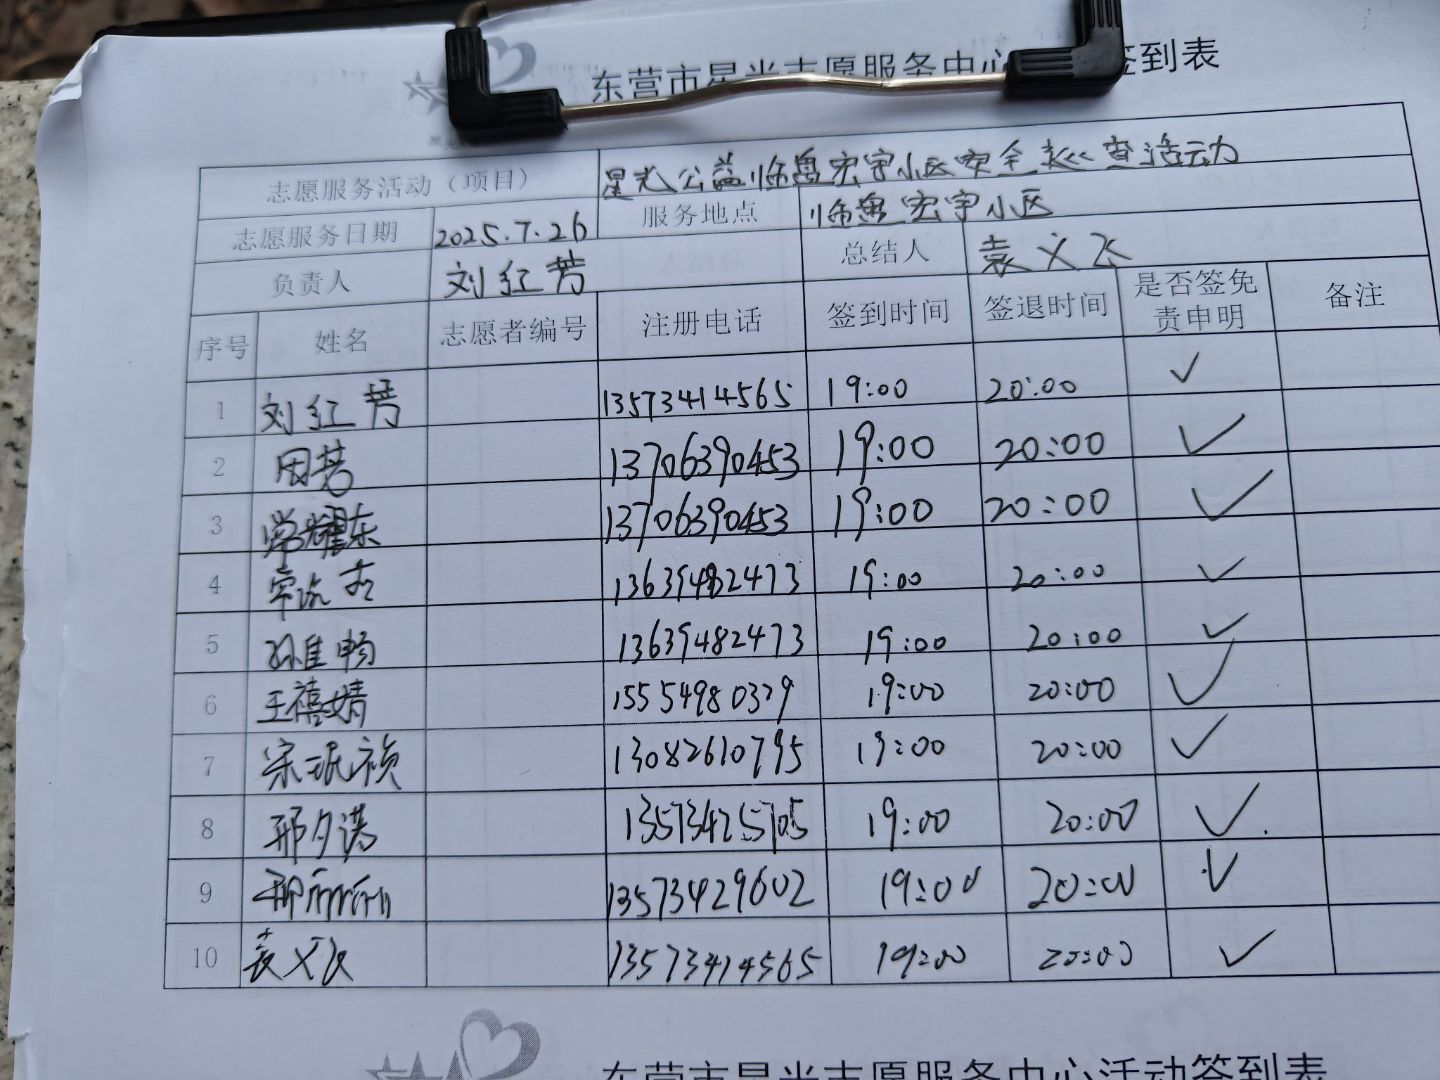 东营市星光志愿服务中心 签到表
志愿服务活动（项目） 星光公益临盘宏宇小区安全巡查活动
志愿服务日期 2025.7.26 服务地点 临盘宏宇小区
负责人 刘红芳 总结人 袁义飞
序号 姓名 志愿者编号 注册电话 签到时间 签退时间 是否签免责申明 备注
1 刘红芳 13573414565 19:00 20:00 ✓
2 13706390453 19:00 20:00 ✓
3 常耀东 13706390453 19:00 20:00 ✓
4 13639482473 19:00 20:00 ✓
5 孙佳畅 13639482473 19:00 20:00 ✓
6 王禧婧 15554980329 19:00 20:00 ✓
7 宋珉祯 13082610795 19:00 20:00 ✓
8 邢夕诺 13573425705 19:00 20:00 ✓
9 邢 13573429602 19:00 20:00 ✓
10 袁义飞 13573414565 19:00 20:00 ✓
东营市星光志愿服务中心活动签到表